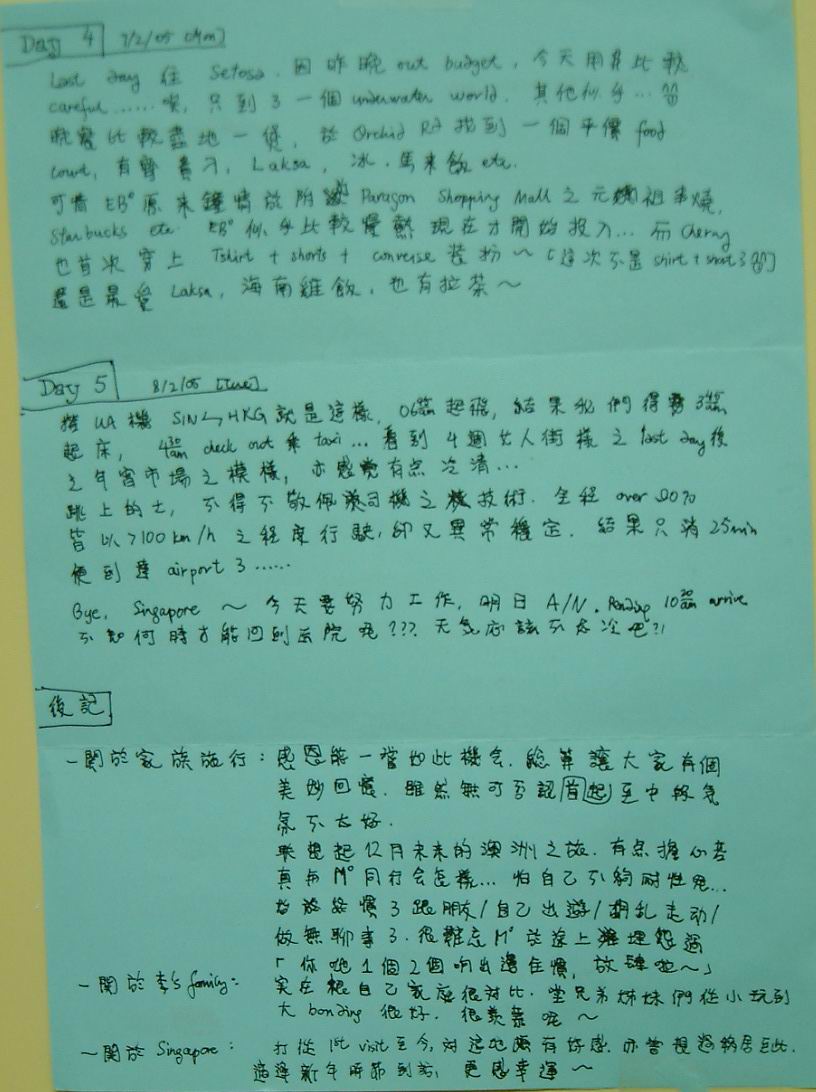 Day 4 7/2/05 [Mon]
Last day 在 Setosa. 因昨晚 out budget, 今天用錢比較
careful ...... 唉, 只到了一個 underwater world. 其他似乎...
晚餐比較盡地一煲, 於 Orchid Rd 找到一個平價 food
court, 有齊 Laksa, 冰, 馬來飯 etc.
可惜 EB° 原來鍾情於附近 Paragon Shopping Mall 之元祖串燒,
Starbucks etc. EB° 似乎比較慢熱 現在才開始投入... 而 Cherry
也首次穿上 Tshirt + shorts + converse 裝扮 ~ (這次不是 shirt + short 了)
還是最愛 Laksa, 海南雞飯, 也有拉茶 ~
Day 5 8/2/05 [Tue]
搭 UA 機 SIN → HKG 就是這樣, 起飛, 結果我們得要
起床, 4:30am check out 乘 taxi ... 看到 4 個女人街樣之 last day 後
之年宵市場之模樣, 亦感覺有点冷清...
跳上的士, 不得不敬佩司機之技術. 全程 over 90%
皆以 >100 km/h 之程度行駛, 卻又異常穩定. 結果只消 25min
便到達 airport 了 ......
Bye, Singapore ~ 今天要努力工作, 明日 A/N. 10:20am arrive
不知何時才能回到法院呢??? 天気應該不太冷吧?!
後記
- 關於家族旅行: 感恩能一嘗如此機会. 總算讓大家有個
美妙回憶. 雖然無可否認首起至中段気
氛不太好.
聯想起12月未來的澳洲之旅. 有点擔心若
真和 M° 同行会怎樣... 怕自己不夠耐性呢...
始終習慣了跟朋友/自己出遊/胡乱走动/
做無聊事了. 很難忘 M° 於途上埋怨過
「你哋1個2個响出邊住慣, 放肆啦~」
- 關於李's family: 實在跟自己家庭很对比. 堂兄弟姊妹們從小玩到
大 bonding 很好. 很羨慕呢 ~
- 關於 Singapore: 打從 1st visit 至今, 对這地方頗有好感. 亦曾想過移居至此.
適逢新年時節到訪, 更感幸運 ~